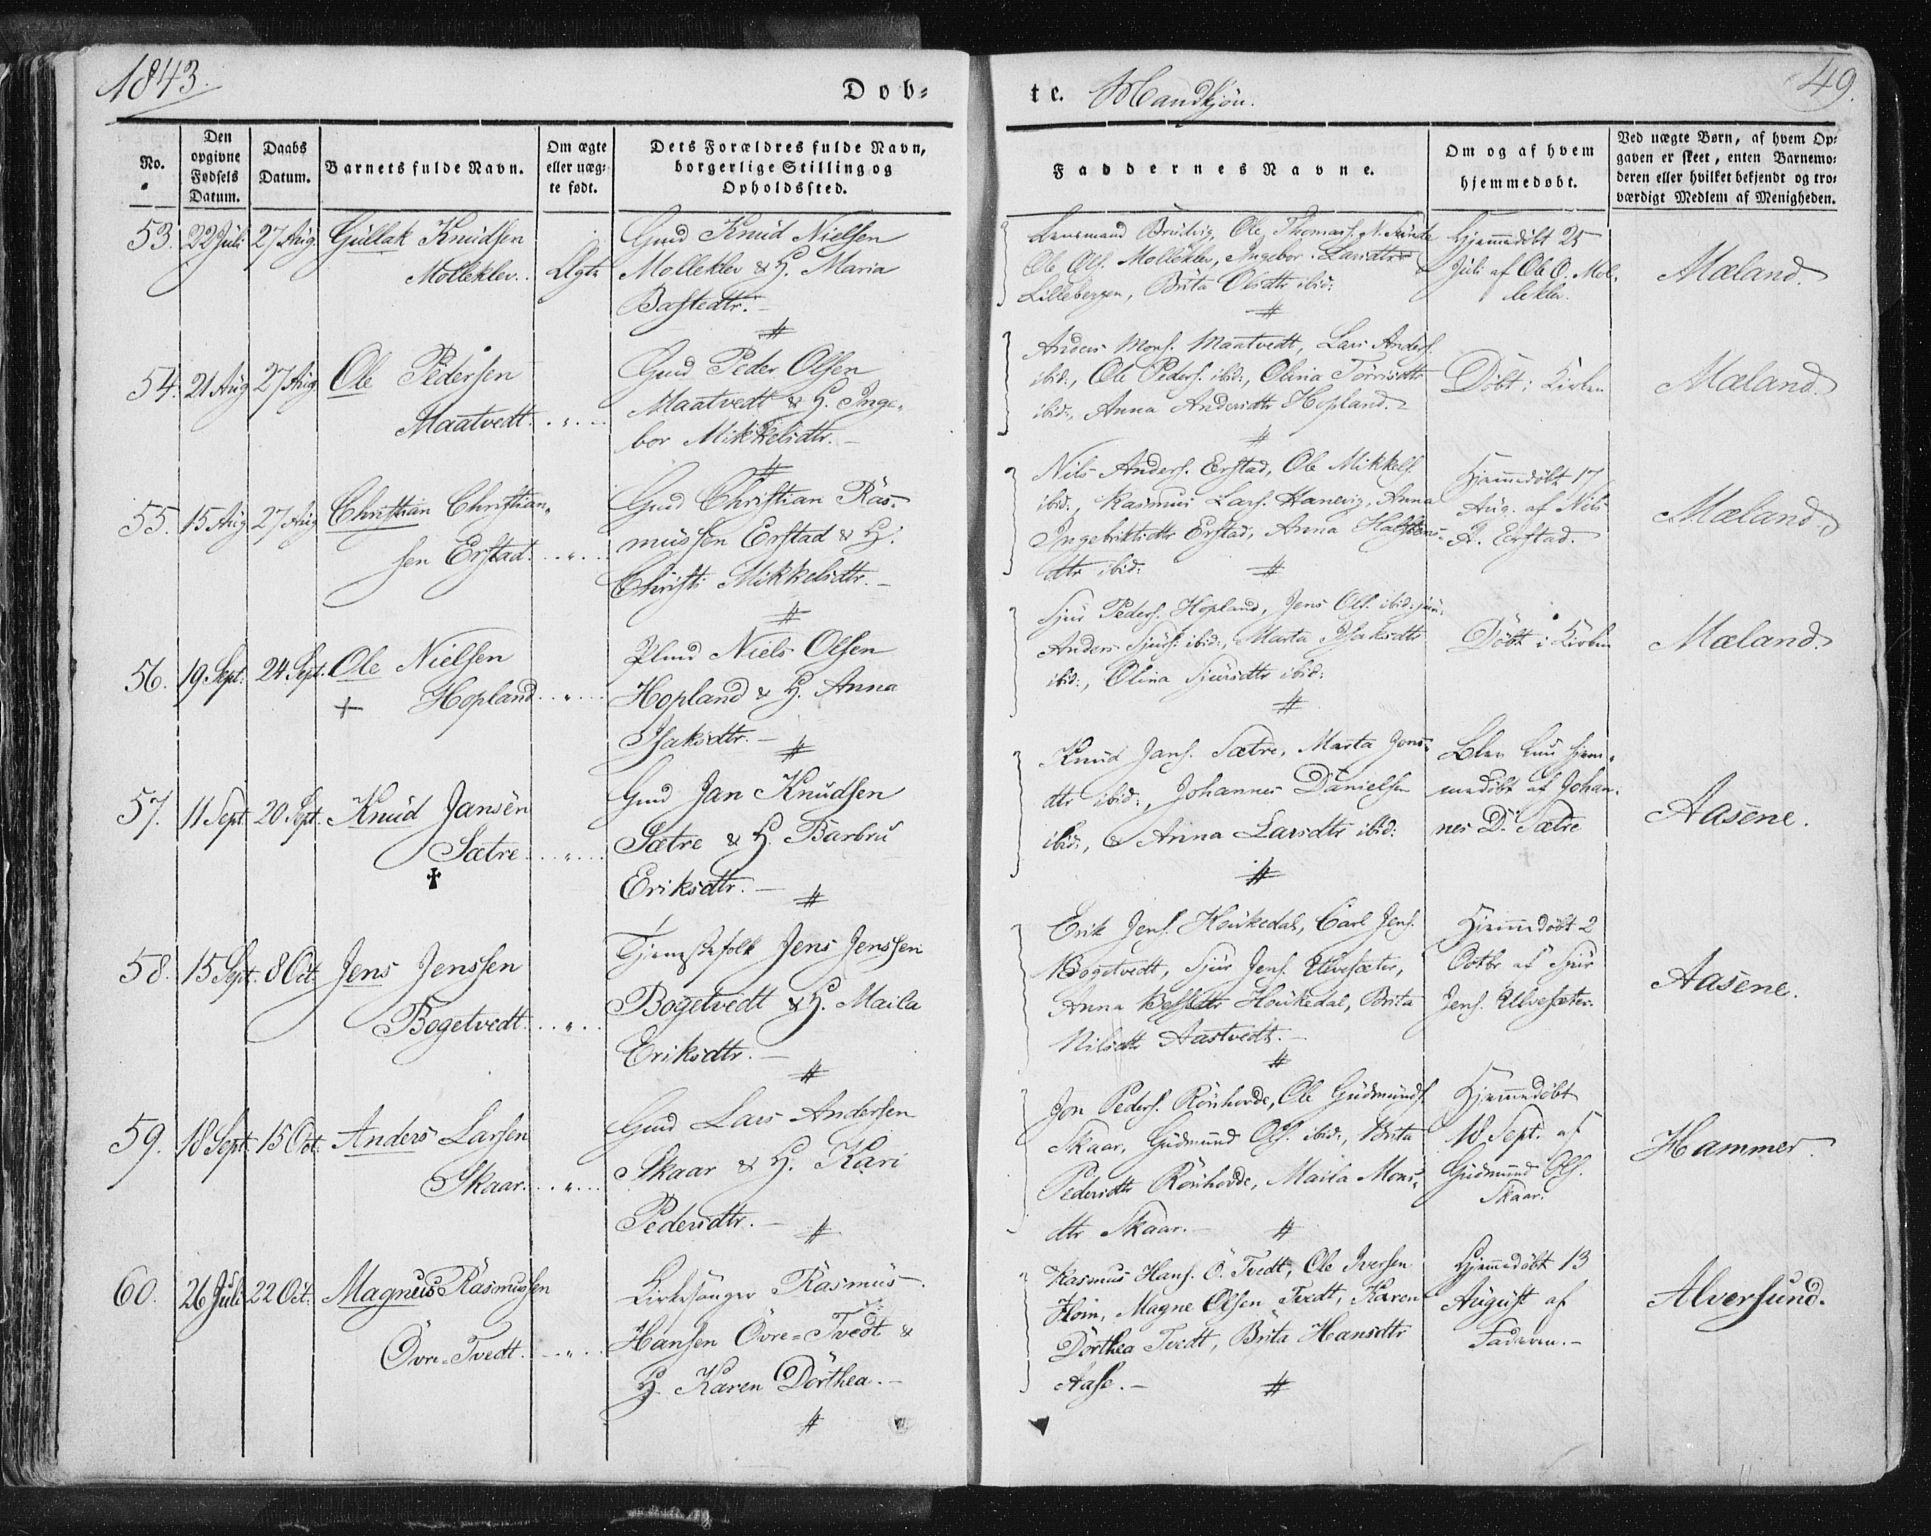 1843.
Døb-
te. Mandkjön.
49.
No.
Den opgivne Fødsels Datum.
Daabs Datum.
Barnets fulde Navn.
Om ægte eller uægte født.
Dets Forældres fulde Navn, borgerlige Stilling og Opholdssted.
Faddernes Navne.
Om og af hvem hjemmedøbt.
Ved uægte Børn, af hvem Opgaven er skeet, enten Barnemoderen eller hvilket bekjendt og troværdigt Medlem af Menigheden.
53. 22 Juli 27 Aug. Gullak Knudsen
Mollekler. Ægte
Gmd Knud Nielsen
Mollekler & H. Maria
Lensmand Brudvig, Ole Thomas. N.
Ole Ols. Mollekler, Ingebor Larsdtr
Lillebergen, Brita Olesdtr ibid:
Hjemmedöbt 25
Juli af Ole O. Mol-
lekler.
Mæland.
54. 21 Aug 27 Aug Ole Pedersen
Maatvedt. „
Gmd Peder Olsen
Maatvedt & H. Inge-
bor Mikkelsdtr. -
Anders Mons. Maatvedt, Lars Anders.
ibid:, Ole Peders. ibid:, Olina
ibid:, Anna Andersdtr Hopland.
Döbt i Kirken
Mæland.
55. 15 Aug 27 Aug Christian Christian-
sen Erstad. „
Gmd Christian Ras-
mussen Erstad & H.
Christi Mikkelsdtr. -
Nils Anders. Erstad, Ole Mikkels.
ibid:, Rasmus Lars. Hanevig, Anna
Ingebriktsdtr Erstad, Anna
dtr ibid:
Hjemmedöbt 17
Aug. af Nils
A. Erstad.
Mæland.
56. 19 Sept. 24 Sept. Ole Nielsen
+ Hopland „
Plmd Niels Olsen
Hopland & H. Anna
Isaksdtr. -
Sjur Peders. Hopland, Jens Ols. ibid:
Anders Sjurs. ibid:, Marta Isaksdtr
ibid:, Olina Siursdtr ibid:
Döbt i Kirken
Mæland.
57. 11 Sept. 20 Sept. Knud Jansen
Sætre. „
Gmd Jan Knudsen
Sætre & H. Barbru
Eriksdtr. -
Knud Jans. Sætre, Marta Jons-
dtr ibid:, Johannes Danielsen
ibid:, & Anna Larsdtr ibid:
Blev kun hjem-
medöbt af Johan-
nes D. Sætre
Aasene.
58. 15 Sept. 8 Oct. Jens Jenssen
Bogetvedt. „
Tjenestefolk Jens Jenssen
Bogetvedt & H. Maila
Eriksdtr. -
Erik Jens. Houkedal, Carl Jens.
Bogetvedt, Sjur Jens. Ulvesæter,
Anna Houkedal, Brita
Nilsdtr Aastvedt. -
Hjemmedöbt 2
Octbr af Sjur
Jens. Ulvesæter
Aasene.
59. 18 Sept. 15 Oct. Anders Larsen
Skaar. „
Gmd Lars Andersen
Skaar & H. Kari
Pedersdtr. -
Jon Peders. Rönhovde, Ole Gudmunds.
Skaar, Gudmund Ols. ibid:, Brita
Pedersdtr Rönhovde, Maila Mons-
dtr Skaar. -
Hjemmedöbt
18 Sept. af
Gudmund Ols.
Skaar.
Hammer.
60. 26 Juli 22 Oct. Magnus Rasmussen
Övre-Tvedt. „
Kirkesanger Rasmus
Hansen Övre-Tvedt &
H. Karen Dorthea. -
Rasmus Hans. Ö. Tvedt, Ole Iversen
Magne Olsen Tvedt, Karen
Dorthea Tvedt, Brita Hansdtr
Aase. -
Hjemmedöbt 13
August af
Faderen. -
Alversund.